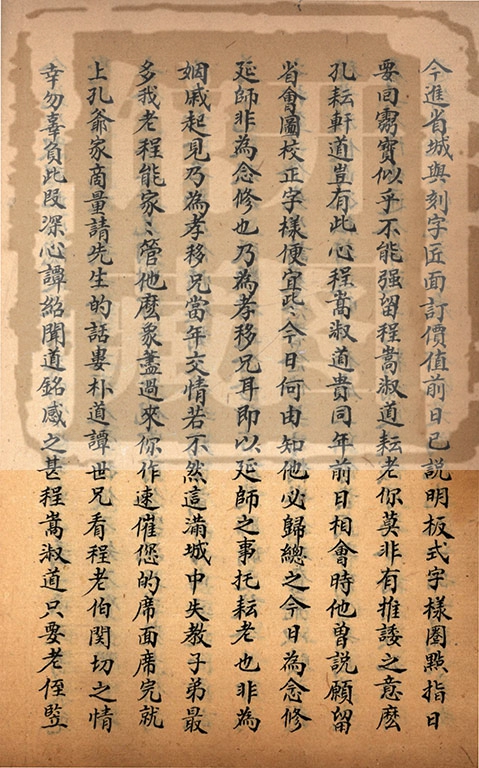 今進省城與刻字匠面訂價值前日已説明板式字樣圈點指日
要回霱寶似乎不能强留程嵩淑道耘老你莫非有推諉之意麽
孔耘軒道豈有此心程嵩淑道貴同年前日相會時他曾説願留
省會圖校正字樣便宜些今日何由知他必歸總之今日為念修
延師非為念修也乃為孝移兄耳即以延師之事托耘老也非為
姻戚起見乃為孝移兄當年交情若不然這滿城中失教子弟最
多我老程能家〻管他麽象藎過來你作速催您的席面席完就
上孔爺家商量請先生的話婁朴道譚世兄看程老伯関切之情
幸勿辜負此段深心譚紹聞道銘感之甚程嵩淑道只要老侄竪